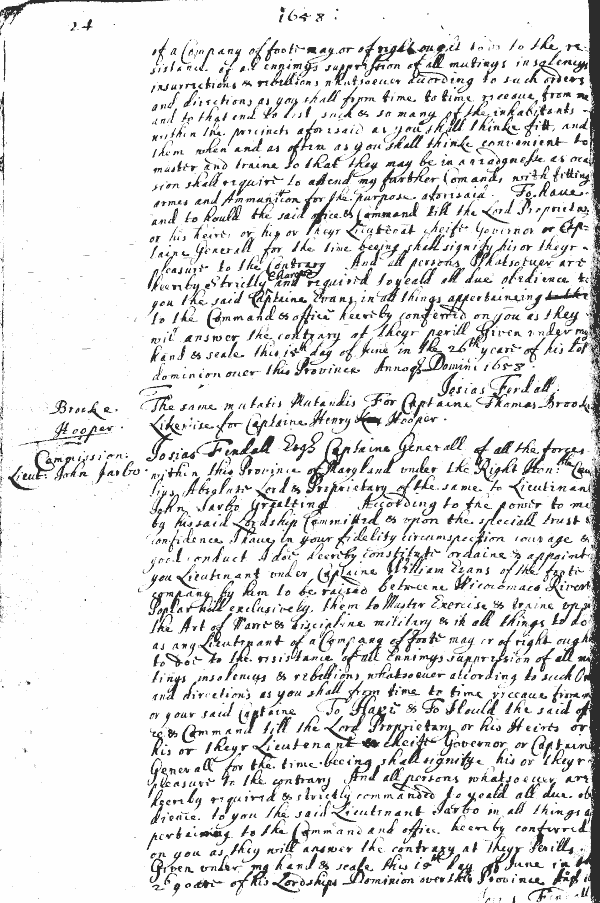 24
1658:
of a Company of foote may or of right ought to doe to the re
sistance of all ennimys suppression of all mutinys insolencys
insurrections & rebellions whatsoever according to such orders
and directions as you shall from time to time receave from me
and to that end to list such & so many of the inhabitants
within the precincts aforesaid as you shall thinke fitt, and
them when and as often as you shall thinke convenient to
muster and traine so that they may be in a readynesse as oca
sion shall require to attend my further Comands with fitting
armes and Ammunition for the purpose aforesaid To Have
and to hould the said office & Command till the Lord Proprietary
or his heires or his or theyr Lieutenat cheife Governor or Cap
taine Generall for the time beeing shall signify his or theyr
pleasure to the Contrary And all persons Whatsoever are
heereby strictly charged and required to yeald all due obedience to
you the said Captaine Evans in all things appertaineing
to the Command & office heereby conferred on you as they
will answer the contrary at theyr perill Given under my
hand & seale this 15th day of June in the 26th yeare of his Lops
dominion over this Province Annoq Domini 1658
Josias Fendall.
Brooke.
Hooper.
The same mutatis Mutandis For Captaine Thomas Brooke
Likewise for Captaine Henry Hooper.
Commission:
Lieut. John Jarbo.
Josias Fendall Esqr Captaine Generall of all the forces
within this Province of Maryland under the Right Honble
Absolute Lord & Proprietary of the same to Lieutinant
John Jarbo Greetting According to the power to me
by his said Lordship Committed & upon the speciall trust &
confidence I have in your fidelity circumspection courage &
good conduct I doe heereby constitute ordaine & appoint
you Lieutenant under Captaine William Evans of the foote
company by him to be raised betweene Wicocomaco River &
Poplar hill exclusively, them to Muster Exercise & traine up in
the Art of Warre & discipline military & in all things to do
as any Lieutenant of a Company of foote may or of right ought
to doe to the resistance of all Ennimys suppression of all mu
tinys insolencys & rebellions whatsoever according to such Or
and directions as you shall from time to time receave from me
or your said Captaine To Have & To Hould the said of
ce & Command till the Lord Proprietary or his Heires or
his or theyr Lieutenant cheife Governor or Captaine
Generall for the time beeing shall signifye his or theyr
pleasure to the contrary And all persons whatsoever are
heereby required & strictly commanded to yeald all due obe
dience to you the said Lieutenant Jarbo in all things a
pertaineing to the Command and office heereby conferred
on you as they will answer the contrary at theyr Perills.
Given under my hand & seale this 15th day of June in the
26 yeare of his Lordships Dominion over this Province
Josias Fendall